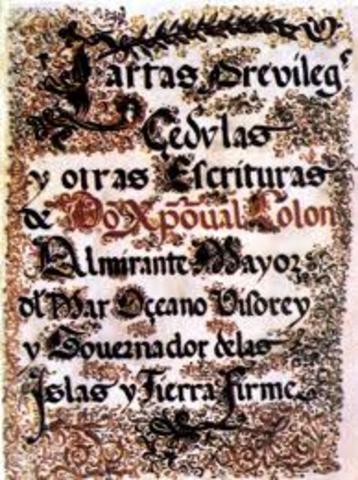 Cartas Previlegˢ
Çedulas
y otras Escrituras
de Dõ Xpõual Colon
Almirante Mayor
dl Mar Oçeano Visorey
y Gouernador delas
Islas y Tierra firme